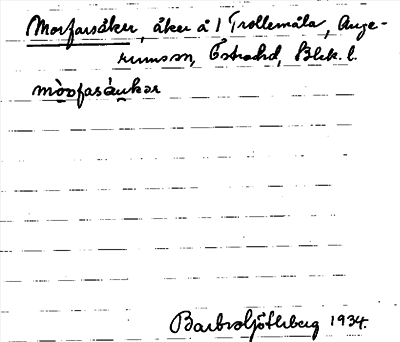 Morfarsåker, åker å 1 Trollemåla, Ange-
rums sn, Östra hd, Blek. l.
mòɷfasáukər
Barbro Ljöthberg 1934.